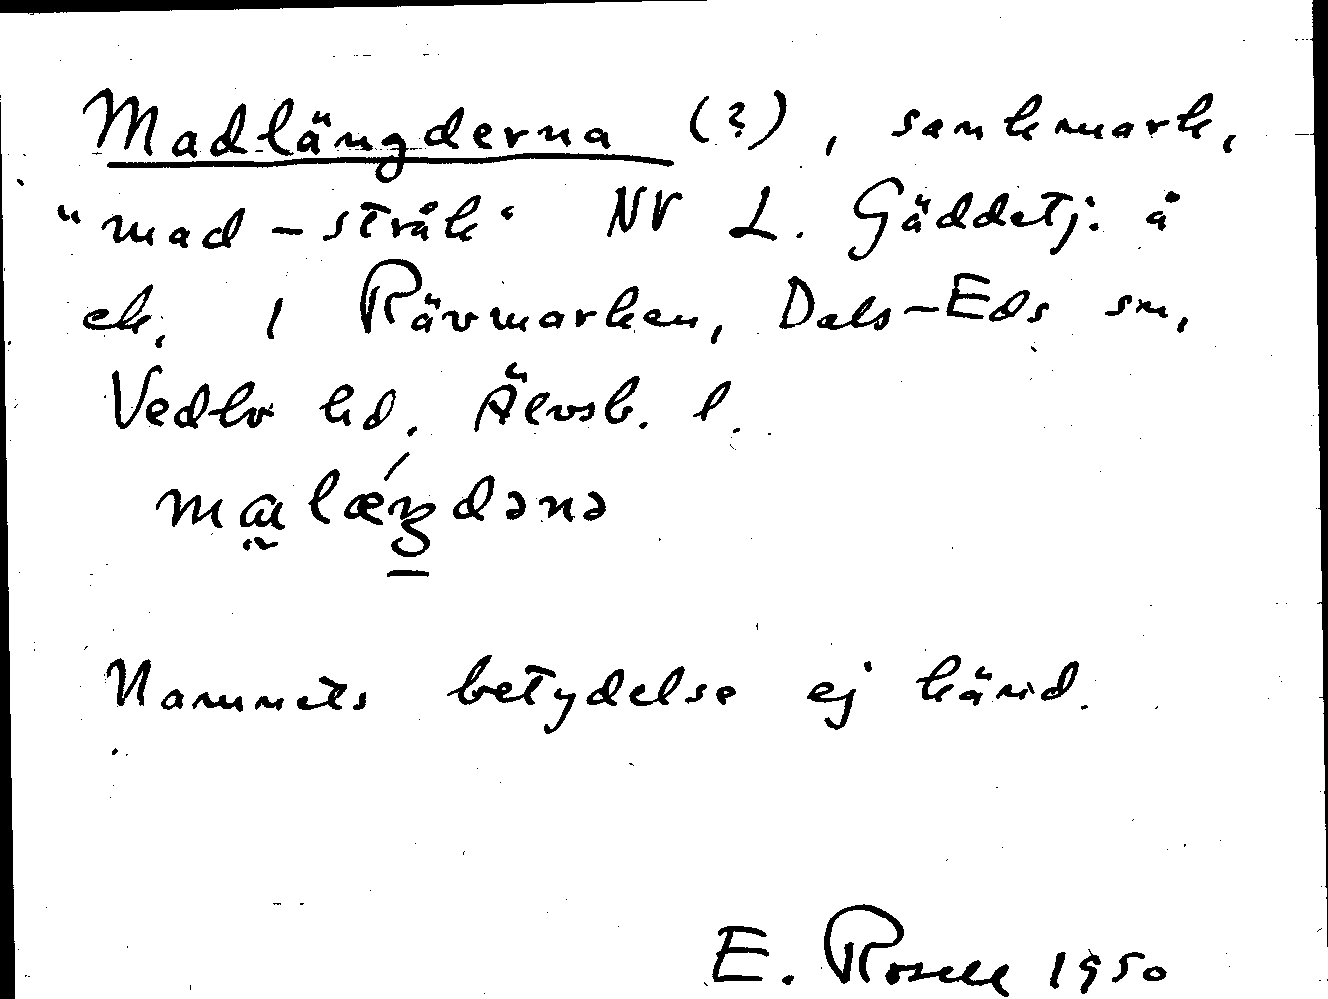 Madlängderna (?), sankmark,
"mad-stråk" NV L. Gäddetj. å
ek. 1 Rävmarken, Dals-Eds sn,
Vedbo hd. Älvsb. l.
Namnets betydelse ej känd.
E. Rosell 1950